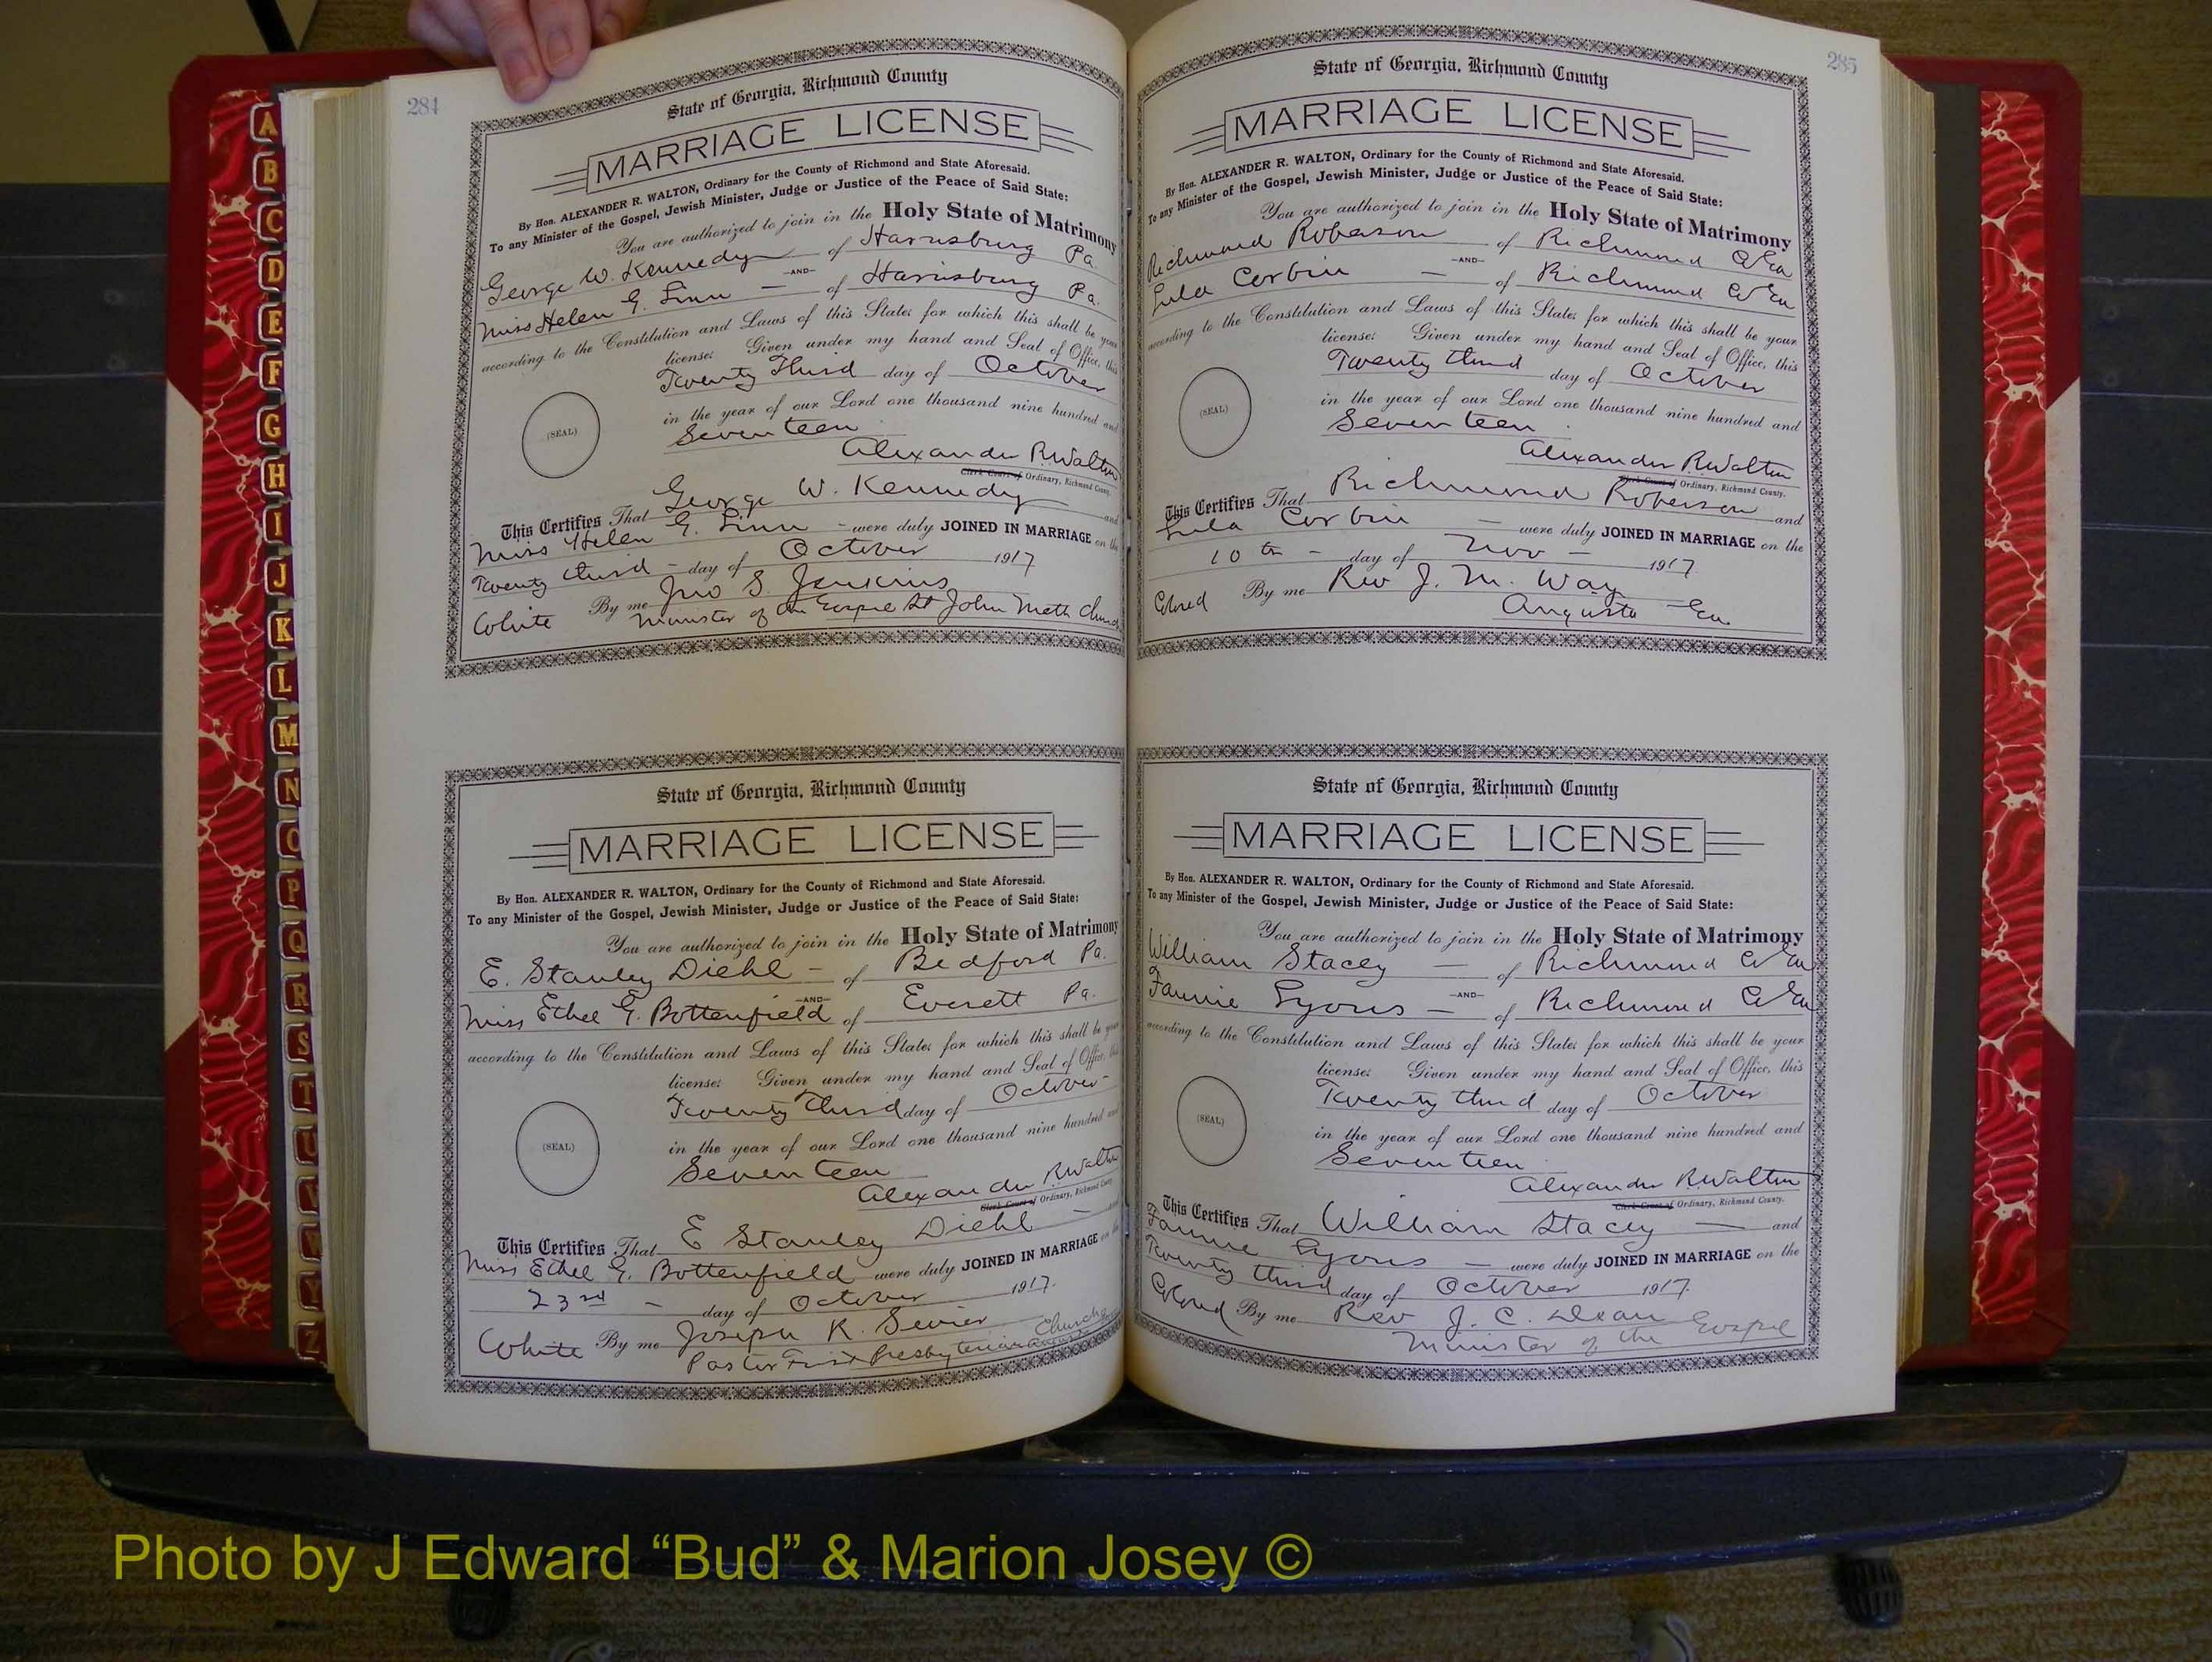 284
State of Georgia, Richmond County
MARRIAGE LICENSE
By Hon. ALEXANDER R. WALTON, Ordinary for the County of Richmond and State Aforesaid.
To any Minister of the Gospel, Jewish Minister, Judge or Justice of the Peace of Said State:
You are authorized to join in the Holy State of Matrimony
George W. Kennedy of Harrisburg Pa.
—AND—
Miss Helen G. Linn — of Harrisburg Pa.
according to the Constitution and Laws of this State; for which this shall be your
license. Given under my hand and Seal of Office, this
Twenty Third day of October
in the year of our Lord one thousand nine hundred and
Seventeen
(SEAL)
Alexander R Walton
Clerk Court of Ordinary, Richmond County.
This Certifies That George W. Kennedy and
Miss Helen G. Linn — were duly JOINED IN MARRIAGE on the
Twenty third — day of October 1917
White By me Jno S. Jenkins
Minister of the Gospel St John Meth Church
State of Georgia, Richmond County
MARRIAGE LICENSE
By Hon. ALEXANDER R. WALTON, Ordinary for the County of Richmond and State Aforesaid.
To any Minister of the Gospel, Jewish Minister, Judge or Justice of the Peace of Said State:
You are authorized to join in the Holy State of Matrimony
E. Stanley Diehl — of Bedford Pa.
—AND—
Miss Ethel G. Bottenfield of Everett Pa.
according to the Constitution and Laws of this State; for which this shall be your
license. Given under my hand and Seal of Office, this
Twenty Third day of October
in the year of our Lord one thousand nine hundred and
Seventeen
(SEAL)
Alexander R Walton
Clerk Court of Ordinary, Richmond County.
This Certifies That E Stanley Diehl — and
Miss Ethel G. Bottenfield were duly JOINED IN MARRIAGE on the
23rd — day of October 1917.
White By me Joseph R. Sevier
Pastor First Presbyterian Church
285
State of Georgia, Richmond County
MARRIAGE LICENSE
By Hon. ALEXANDER R. WALTON, Ordinary for the County of Richmond and State Aforesaid.
To any Minister of the Gospel, Jewish Minister, Judge or Justice of the Peace of Said State:
You are authorized to join in the Holy State of Matrimony
Richmond Roberson of Richmond Co Ga
—AND—
Lula Corbin — of Richmond Co Ga
according to the Constitution and Laws of this State; for which this shall be your
license. Given under my hand and Seal of Office, this
Twenty third day of October
in the year of our Lord one thousand nine hundred and
Seventeen
(SEAL)
Alexander R Walton
Clerk Court of Ordinary, Richmond County.
This Certifies That Richmond Roberson and
Lula Corbin — were duly JOINED IN MARRIAGE on the
10th — day of Nov — 1917
Colored By me Rev J. M. Way
Augusta Ga.
State of Georgia, Richmond County
MARRIAGE LICENSE
By Hon. ALEXANDER R. WALTON, Ordinary for the County of Richmond and State Aforesaid.
To any Minister of the Gospel, Jewish Minister, Judge or Justice of the Peace of Said State:
You are authorized to join in the Holy State of Matrimony
William Stacey — of Richmond Co Ga
—AND—
Fannie Lyons — of Richmond Co Ga
according to the Constitution and Laws of this State; for which this shall be your
license. Given under my hand and Seal of Office, this
Twenty third day of October
in the year of our Lord one thousand nine hundred and
Seventeen
(SEAL)
Alexander R Walton
Clerk Court of Ordinary, Richmond County.
This Certifies That William Stacey — and
Fannie Lyons — were duly JOINED IN MARRIAGE on the
Twenty third day of October 1917.
Colored By me Rev J. C. Dean
Minister of the Gospel
A
B
C
D
E
F
G
H
I
J
K
L
M
N
O
P
Q
R
S
T
U
V
W
Y
Z
Photo by J Edward “Bud” & Marion Josey ©